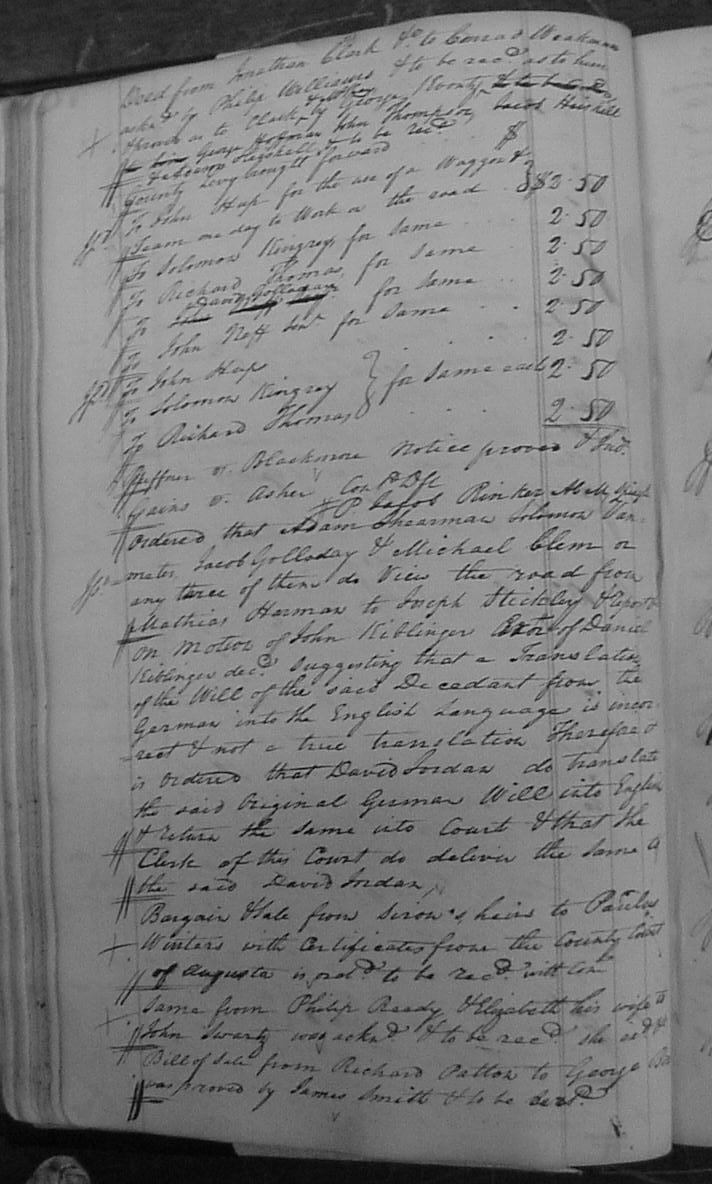 Deed from Jonathan Clark &c. to Conrad Weakman
ackd. by Philip Williams & to be recd. as to him
& others
proven as to Clark, by George
George Hoffman John Thompson, Jacob Huishell
to be recd.
County Levy brought forward $
To John Hup for the use of a Waggon &
Team one day to Work on the road .. } $2.50
To Solomon Kingrey for Same 2.50
To Richard Thomas for Same 2.50
To David Gollagay for Same 2.50
To John Neff Senr. for Same 2.50
To John Hup 2.50
To Solomon Kingrey } for Same each 2.50
To Richard Thomas 2.50
Ruffner v. Blackmore Notice proved & Jud.
Gains v. Asher Con Dft
P. Jacob Rinker
Ordered that Adam Shearman Solomon Van-
meter, Jacob Golloday & Michael Clem or
any three of them do View the road from
Mathias Harman to Joseph Stickley & report &
On Motion of John Kiblinger Exor. of Daniel
Kiblinger decd. suggesting that a Translation
of the Will of the said Decedant from the
German into the English Language is incor-
rect & not a true translation Therefore it
is Ordered that David Jordan do translate
the said Original German Will into English
& return the same into Court & that the
Clerk of this Court do deliver the Same
the said David Jordan
Bargain & Sale from Siron's heirs to Paulus
Winters with Certificates from the County Court
of Augusta is prod. to be recd. with Cer
Same from Philip Ready & Elizabeth his wife to
John Swartz was acknd. & to be recd. she exd. &
Bill of Sale from Richard Patton to George
was proved by James Smith & to be recd.